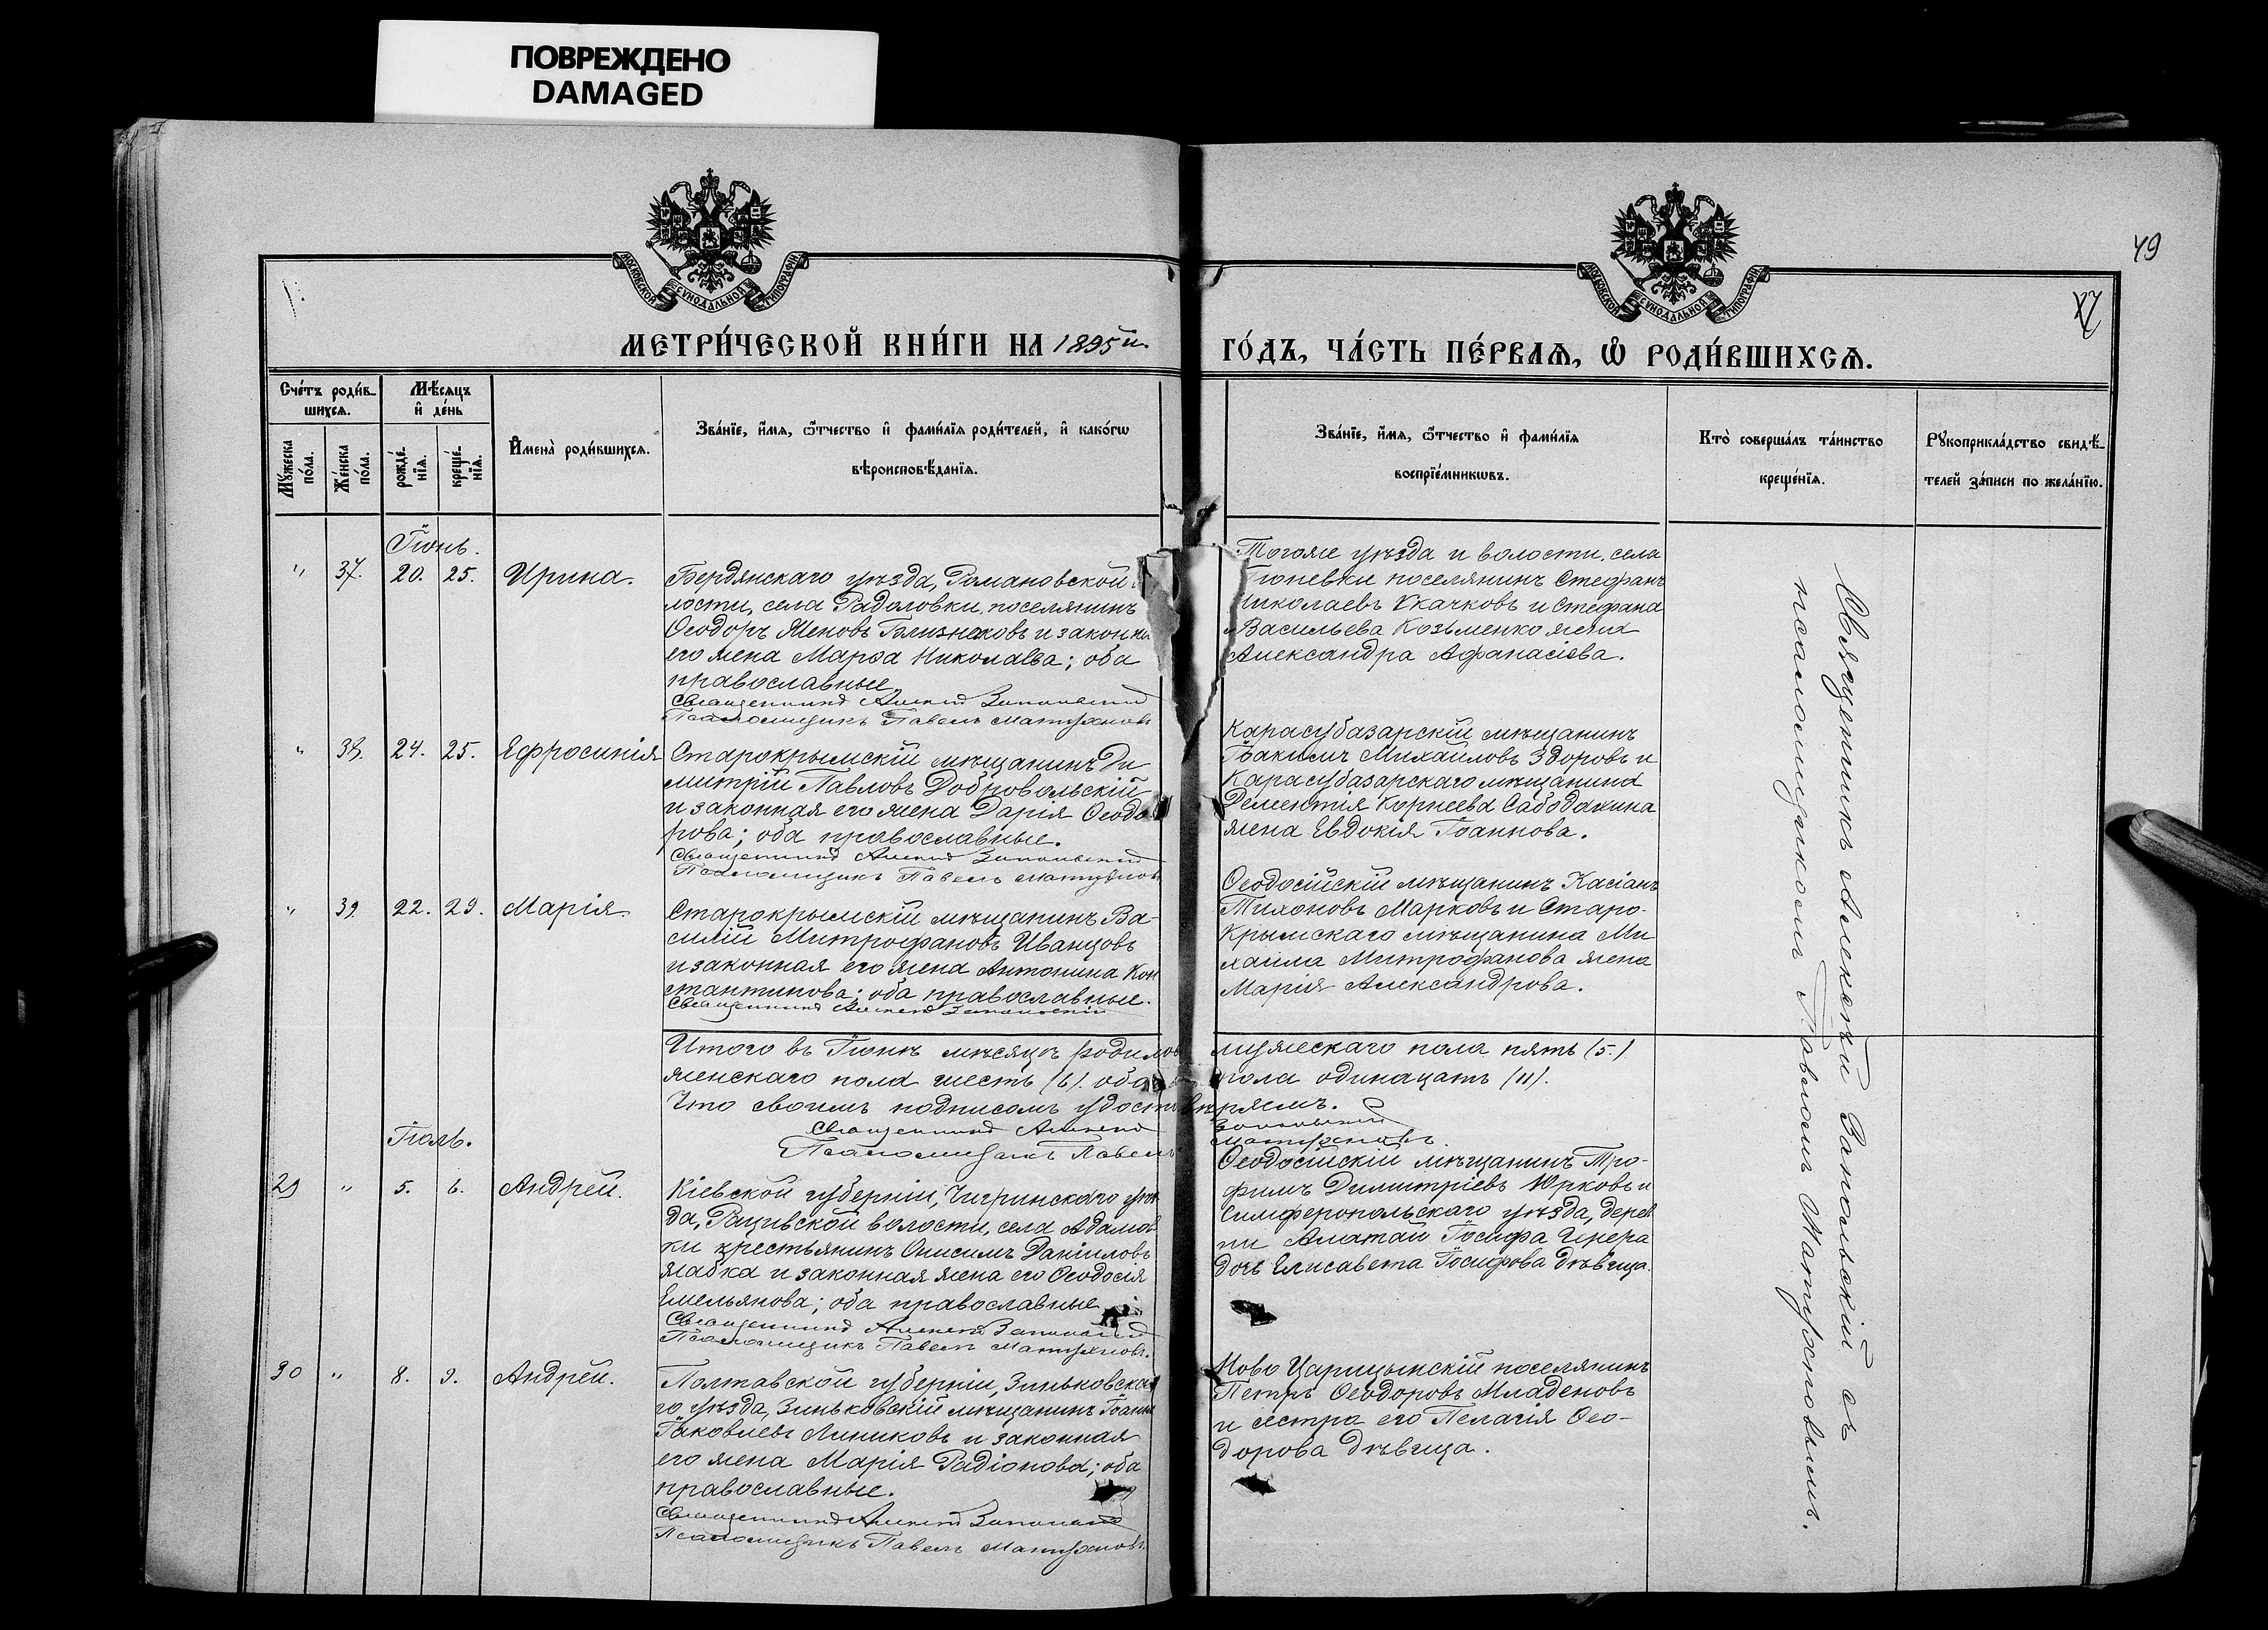 ПОВРЕЖДЕНО
DAMAGED
МОСКОВСКОЙ СѴНОДАЛЬНОЙ ТИПОГРАФІИ
МОСКОВСКОЙ СѴНОДАЛЬНОЙ ТИПОГРАФІИ
49
МЕТРИ́ЧЕСКОЙ КНИ́ГИ НА 1895й
ГО́ДЪ, ЧА́СТЬ ПЕ́РВАѦ, Ѽ РОДИ́ВШИХСѦ.
Сче́тъ роди́в-
шихсѧ.
Мѣ́сяцъ
и҆ де́нь
Мꙋ́жеска
по́ла.
Же́нска
по́ла.
рожде́-
нїѧ.
креще́-
нїѧ.
И҆мена̀ роди́вшихсѧ.
Зва́нїе, и҆́мѧ, ѻ҆́тчество и҆ фами́лїѧ роди́телей, и҆ како́гѡ
вѣроисповѣ́данїѧ.
Зва́нїе, и҆́мѧ, ѻ҆́тчество и҆ фами́лїѧ
воспрїе́мникѡвъ.
Кто̀ соверша́лъ та́инство
креще́нїѧ.
Рꙋкоприкла́дство свидѣ́-
телей за́писи по жела́нїю.
Іюнь.
" 37. 20. 25. Ирина.
Бердянскаго уѣзда, Романовской
лости, села Радоловки, поселянинъ
Ѳеодоръ и законная
его жена Марѳа Николаева; оба
православные.
Священникъ Алексѣй Запольскій
Псаломщикъ Павелъ Матухновъ
Тогоже уѣзда и волости, села
Гюневки поселянинъ Стефанъ
Николаевъ Скачковъ и Стефана
Васильева Козьменко жена
Александра Афанасіева.
" 38. 24. 25. Ефросинія
Старокрымскій мѣщанинъ Ди
митрій Павловъ Добровольскій
и законная его жена Дарія Ѳеодо
рова; оба православные.
Священникъ Алексѣй Запольскій
Псаломщикъ Павелъ Матухновъ
Карасубазарскій мѣщанинъ
Іоакимъ Михайловъ Здоровъ и
Карасубазарскаго мѣщанина
Дементія Корнеева Сабодахина
жена Евдокія Іоаннова.
" 39. 22. 29. Марія.
Старокрымскій мѣщанинъ Ва-
силій Митрофановъ Иванцовъ
и законная его жена Антонина Кон
стантинова; оба православные.
Священникъ Алексѣй Запольскій
Ѳеодосійскій мѣщанинъ Касіанъ
Тихоновъ Марковъ и Старо-
Крымскаго мѣщанина Ми
хаила Митрофанова жена
Марія Александрова.
Итого въ Іюнѣ мѣсяцѣ родилось мужескаго пола пять (5.)
женскаго пола шесть (6). обоего пола одинацать (11).
Что своимъ подписомъ удостовѣряемъ.
Священникъ Алексѣй Запольскій
Псаломщикъ Павелъ Матухновъ.
Іюль.
29 " 5. 6. Андрей.
Кіевской губерніи, Чигринскаго уѣз
да, Рацивской волости, села Адамов
ки крестьянинъ Онисимъ Даніиловъ
Жабка и законная жена его Ѳеодосія
Емельянова; оба православные
Священникъ Алексѣй Запольскій
Псаломщикъ Павелъ Матухновъ.
Ѳеодосійскій мѣщанинъ Тро-
фимъ Димитріевъ Юрковъ и
Симферопольскаго уѣзда, дерев
ни Алатай Іосифа
дочь Елисавета Іосифова дѣвица.
30 " 8. 9. Андрей.
Полтавской губерніи, Зиньковска
го уѣзда, Зиньковскій мѣщанинъ Іоаннъ
Іаковлевъ Линиковъ и законная
его жена Марія Радіонова; оба
православные.
Священникъ Алексѣй Запольскій
Псаломщикъ Павелъ Матухновъ.
Ново Царицынскій поселянинъ
Петръ Ѳеодоровъ Младеновъ
и сестра его Пелагія Ѳео-
дорова дѣвица.
Священникъ Алексѣй Запольскій съ
псаломщикомъ Павломъ Матухновымъ.